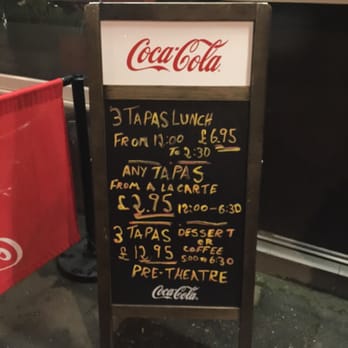 Coca-Cola
3 TAPAS LUNCH
FROM 12:00 £6.95
TO 2:30
ANY TAPAS
FROM A LA CARTE
£2.95 12:00-6:30
3 TAPAS DESSERT
or
£12.95 COFFEE
5:00 to 6:30
PRE-THEATRE
Coca-Cola